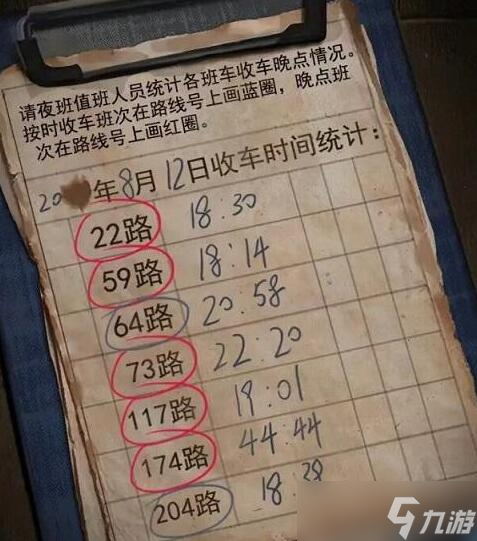 请夜班值班人员统计各班车收车晚点情况。
按时收车班次在路线号上画蓝圈，晚点班
次在路线号上画红圈。
20 年8月12日收车时间统计：
22路 18:30
59路 18:14
64路 20:58
73路 22:20
117路 19:01
174路 44:44
204路 18:38
九游